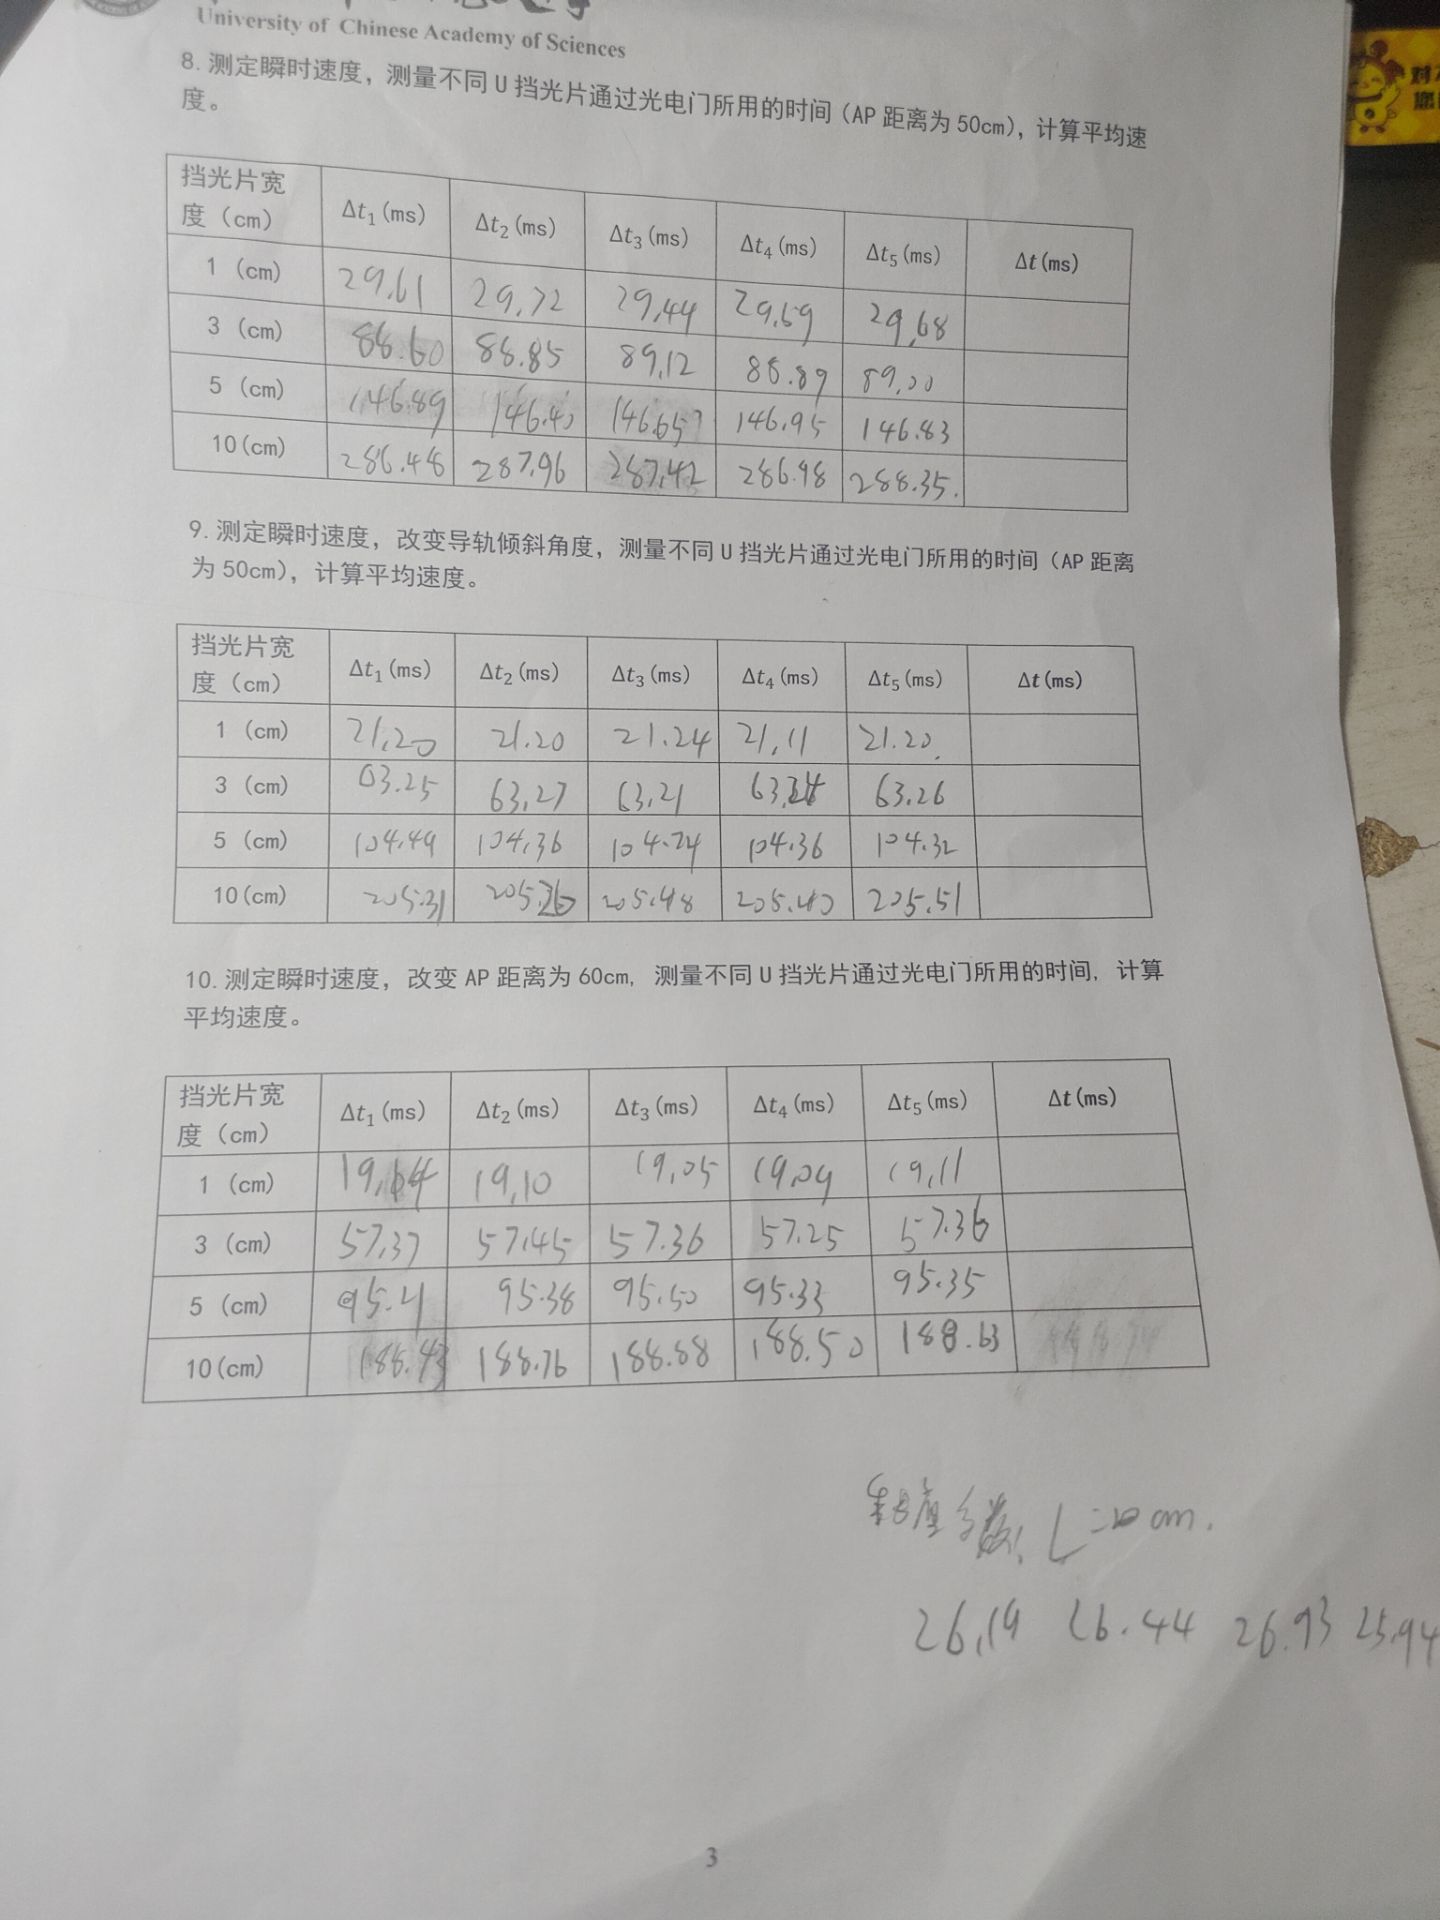 University of Chinese Academy of Sciences
8. 测定瞬时速度，测量不同 U 挡光片通过光电门所用的时间（AP 距离为 50cm），计算平均速
度。
挡光片宽度（cm） Δt₁(ms) Δt₂(ms) Δt₃(ms) Δt₄(ms) Δt₅(ms) Δt(ms)
1 (cm) 29.61 29.72 29.44 29.59 29.68
3 (cm) 88.60 88.85 89.12 88.89 89.00
5 (cm) 146.89 146.40 146.65 146.95 146.83
10(cm) 286.48 287.96 287.42 286.98 288.35.
9. 测定瞬时速度，改变导轨倾斜角度，测量不同 U 挡光片通过光电门所用的时间（AP 距离
为 50cm），计算平均速度。
挡光片宽度（cm） Δt₁(ms) Δt₂(ms) Δt₃(ms) Δt₄(ms) Δt₅(ms) Δt(ms)
1 (cm) 21.20 21.20 21.24 21.11 21.20.
3 (cm) 63.25 63.27 63.21 63.26
5 (cm) 104.49 104.36 104.24 104.36 104.32
10(cm) 205.31 205.48 205.40 205.51
10. 测定瞬时速度，改变 AP 距离为 60cm, 测量不同 U 挡光片通过光电门所用的时间, 计算
平均速度。
挡光片宽度（cm） Δt₁(ms) Δt₂(ms) Δt₃(ms) Δt₄(ms) Δt₅(ms) Δt(ms)
1 (cm) 19.10 19.05 19.09 19.11
3 (cm) 57.37 57.45 57.36 57.25 57.36
5 (cm) 95.41 95.38 95.50 95.33 95.35
10(cm) 188.43 188.76 188.88 188.50 188.63
L= cm.
26.19 26.44 26.93 25.94
3